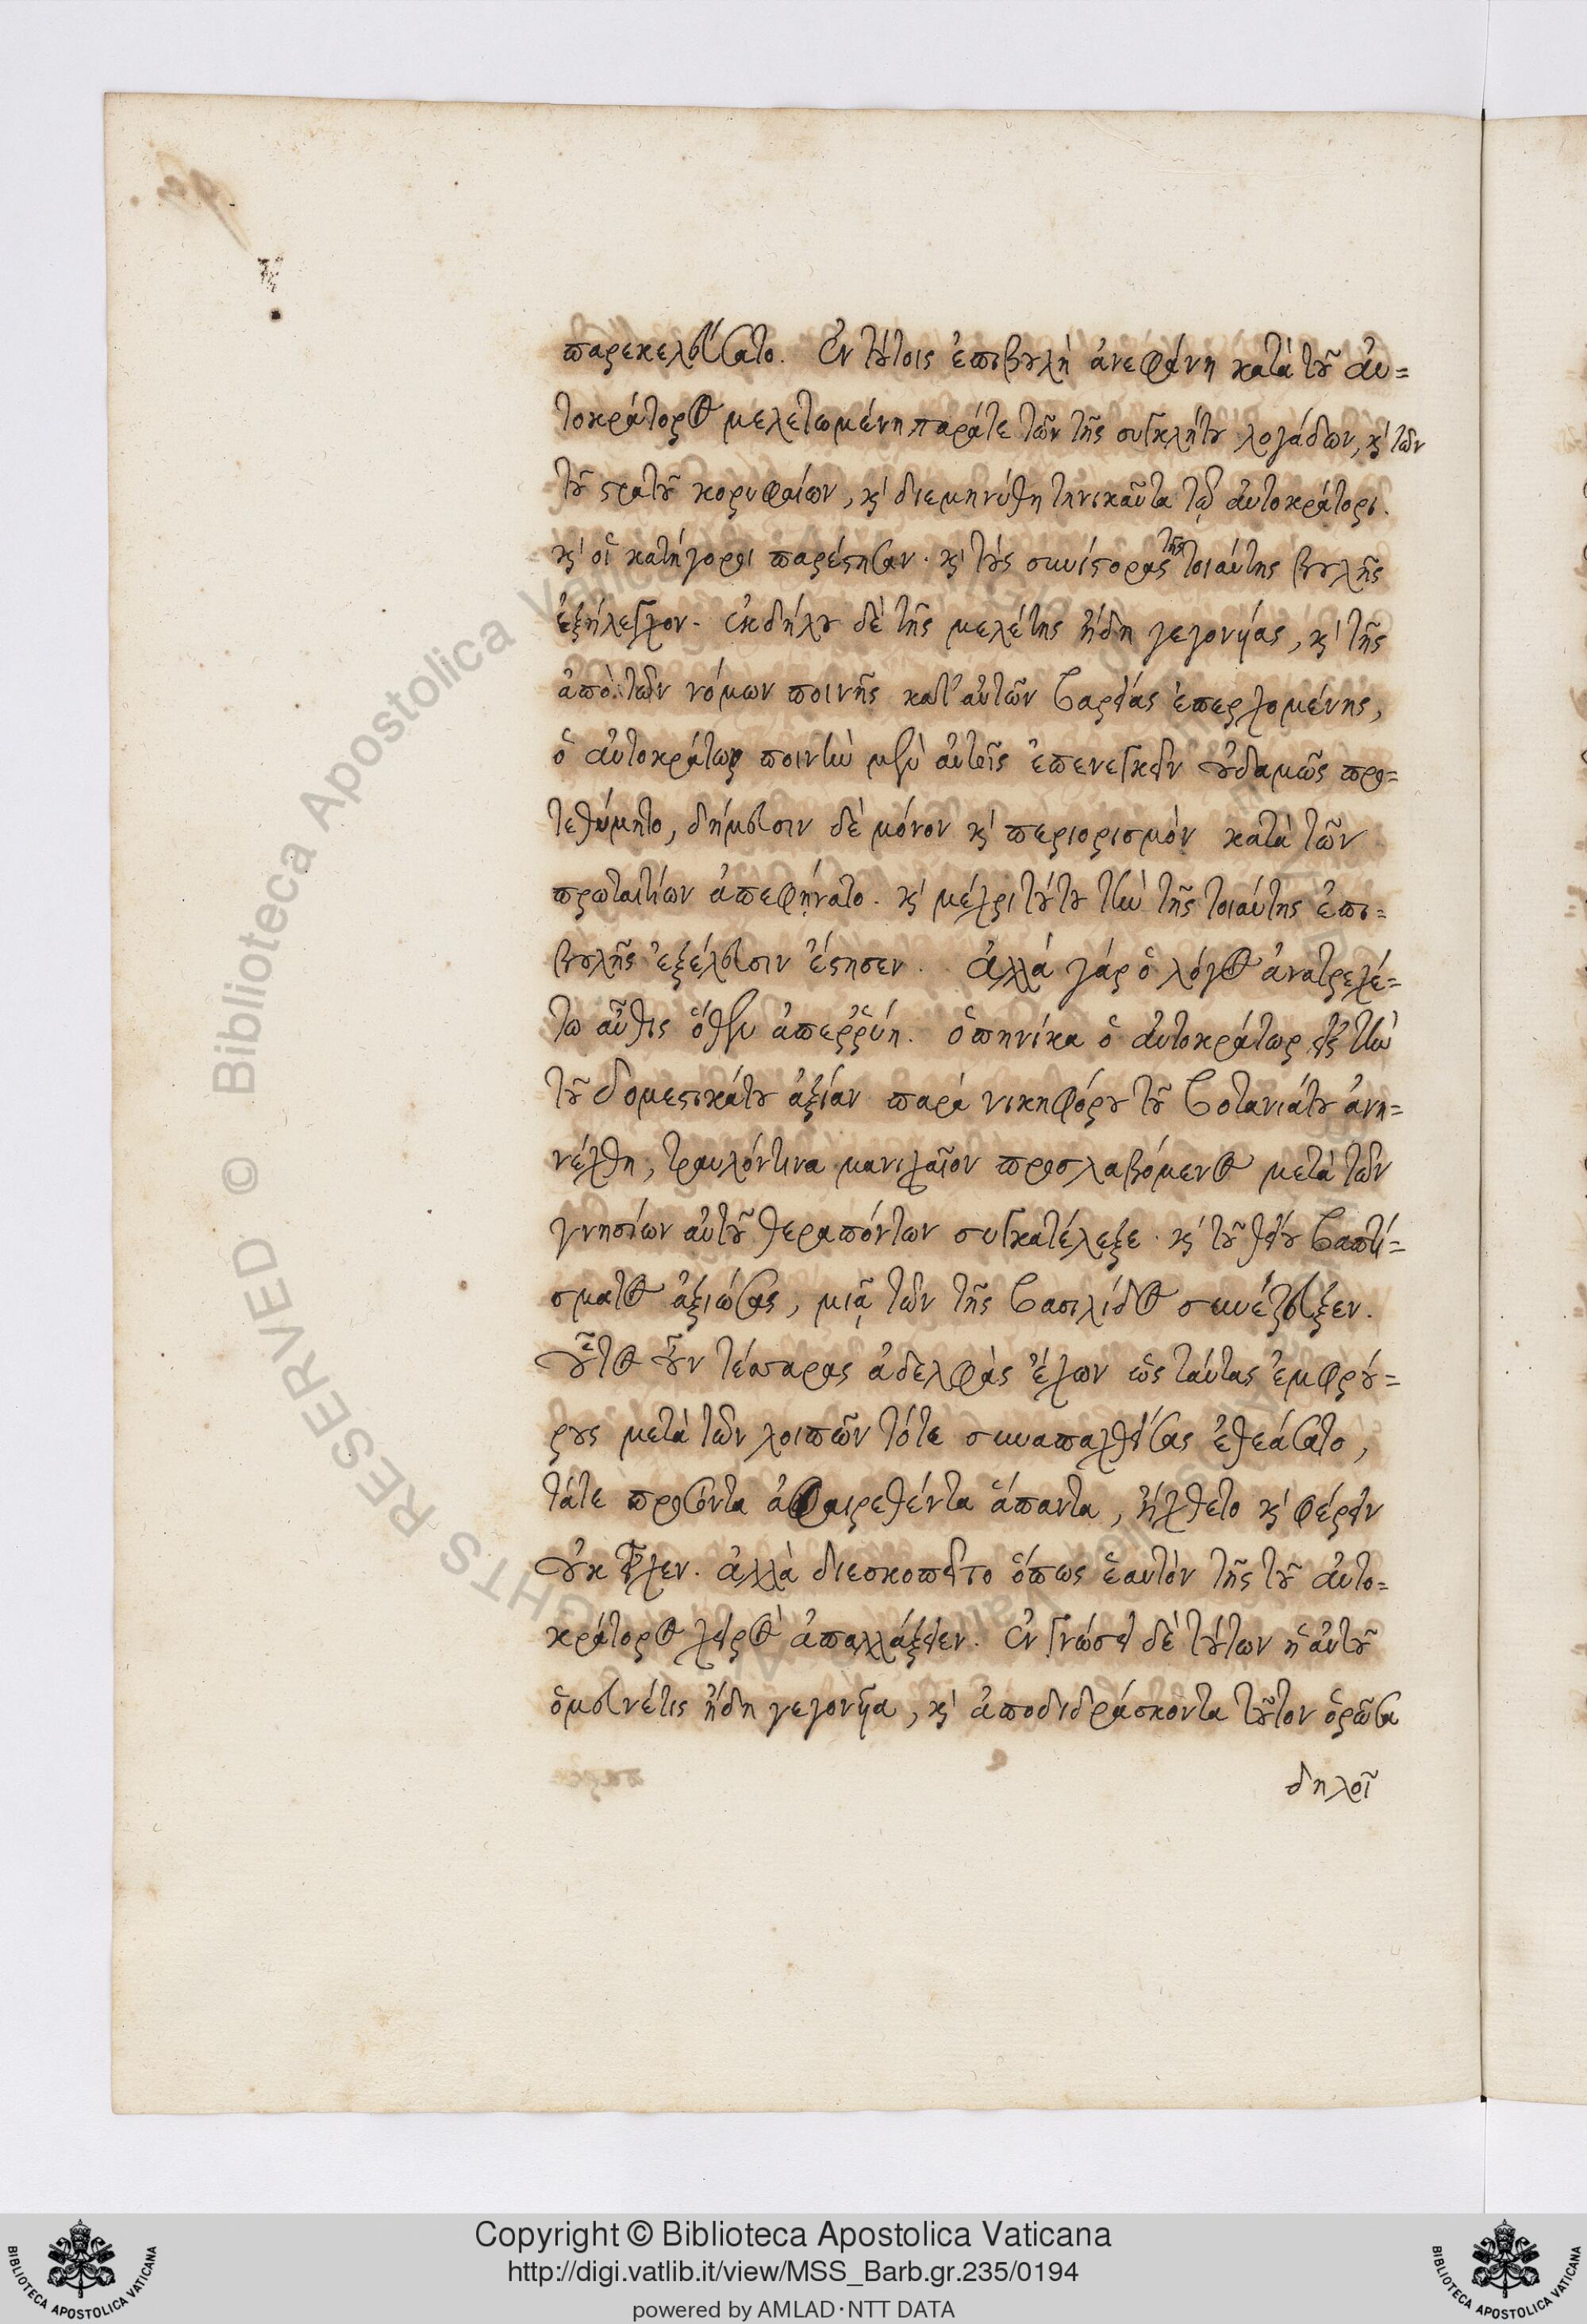 παρεκελεύσατο. Ἐν τούτοις ἐπιβουλὴ ἀνεφάνη κατὰ τοῦ αὐ=
τοκράτορος μελετωμένη παράτε τῶν τῆς συγκλήτου λογάδων, κὶ τῶν
τοῦ στρατοῦ κορυφαίων, κὶ διεμηνύθη τηνικαῦτα τῷ αὐτοκράτορι.
κὶ οἱ κατήγοροι παρέστησαν. κὶ τοὺς συνίστορας τῆς τοιαύτης βουλῆς
ἐξήλεγχον. ἐκδήλου δὲ τῆς μελέτης ἤδη γεγονυίας, κὶ τῆς
ἀπὸ τῶν νόμων ποινῆς κατ' αὐτῶν βαρείας ἐπερχομένης,
ὁ αὐτοκράτωρ ποινὴν μὲν αὐτοῖς ἐπενεγκεῖν οὐδαμῶς προ=
τεθύμητο, δήμευσιν δὲ μόνον κὶ περιορισμὸν κατὰ τῶν
πρωταιτίων ἀπεφήνατο. κὶ μέχρι τούτου τὴν τῆς τοιαύτης ἐπι=
βουλῆς ἐξέλευσιν ἔστησεν. Ἀλλὰ γάρ ὁ λόγος ἀνατρεχέ=
τω αὖθις ὅθεν ἀπεῤῥύη. ὁπηνίκα ὁ αὐτοκράτωρ εἰς τὴν
τοῦ δομεστικάτου ἀξίαν παρὰ νικηφόρου τοῦ βοτανιάτου ἀνη=
νέχθη, τραυλόντινα μανιχαῖον προσλαβόμενος μετὰ τῶν
γνησίων αὐτοῦ θεραπόντων συγκατέλεξε. κὶ τοῦ θείου βαπτί=
σματος ἀξιώσας, μιᾷ τῶν τῆς βασιλίδος συνέζευξεν.
οὗτος οὖν τέσσαρας ἀδελφὰς ἔχων ὡς ταύτας ἐμφρού=
ρους μετὰ τῶν λοιπῶν τότε συναπαχθείσας ἐθεάσατο,
τάτε προσόντα ἀφαιρεθέντα ἅπαντα, ἤχθετο κὶ φέρειν
οὐκ εἶχεν. ἀλλὰ διεσκοπεῖτο ὅπως ἑαυτὸν τῆς τοῦ αὐτο=
κράτορος χειρὸς ἀπαλλάξειεν. Ἐν γνώσει δὲ τούτων ἡ αὐτοῦ
ὁμευνέτις ἤδη γεγονυῖα, κὶ ἀποδιδράσκοντα τοῦτον ὁρῶσα
δηλοῖ
Copyright © Biblioteca Apostolica Vaticana
http://digi.vatlib.it/view/MSS_Barb.gr.235/0194
powered by AMLAD·NTT DATA